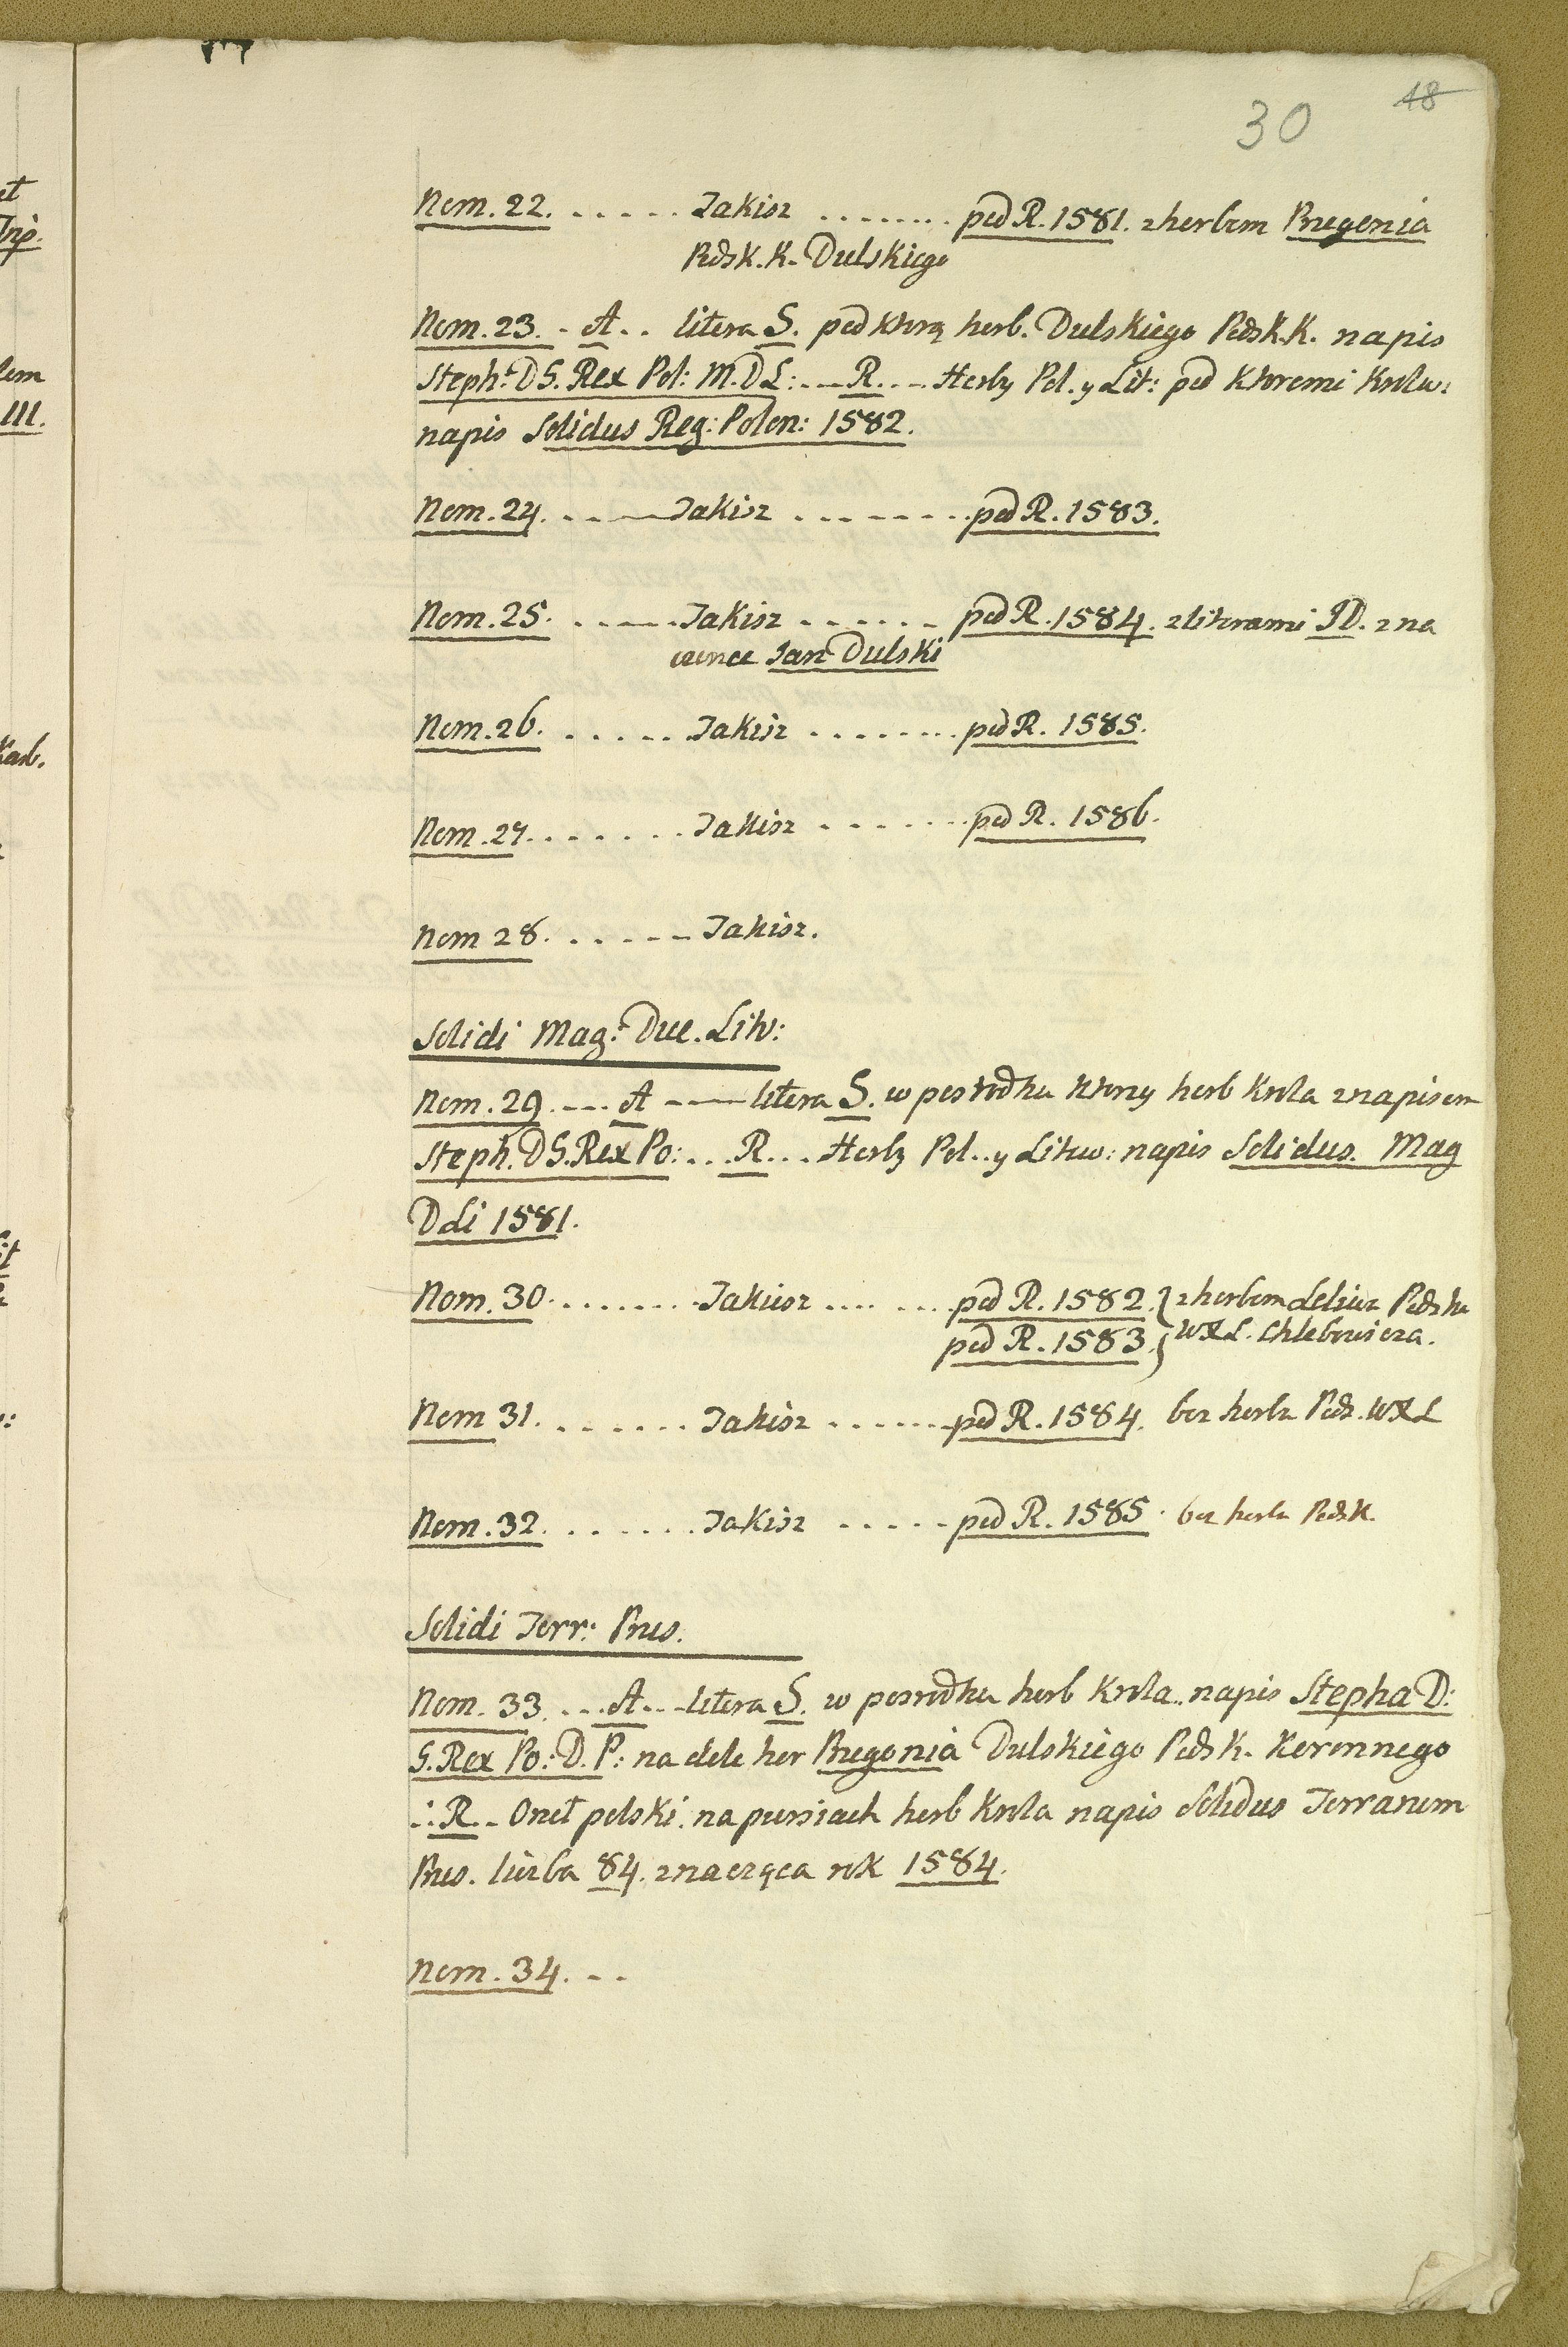 30 48
Nom. 22. ...... Takisz ........ pod R. 1581. z herbem Przegonia
Podsk. K. Dulskiego
Nom. 23. . A . . litera S. pod ktorą herb. Dulskiego Podsk. K. napis
Steph: D G. Rex Pol: M. D L: ... R. ... Herby Pol. y Lit: pod ktoremi Krolew:
napis Solidus Reg: Polon: 1582.
Nom. 24. ..... Takisz ........ pod R. 1583.
Nom. 25. ...... Takisz ...... pod R. 1584. z literami ID. zna
czonce Jan Dulski
Nom. 26. ...... Takisz ........ pod R. 1585.
Nom. 27. ...... Takisz ........ pod R. 1586.
Nom 28. ...... Takisz.
Solidi Mag: Duc. Litv:
Nom. 29. ... A ... litera S. w posrodku ktorey herb Krola z napisem
Steph. D G. Rex Po: ... R. ... Herby Pol. y Litew: napis Solidus. Mag
D Li 1581.
Nom. 30. ....... Takiesz .... .... pod R. 1582. } z herbem Leliwa Podsk
pod R. 1583. } W X L. Chlebowicza.
Nom 31. ....... Takisz ....... pod R. 1584. bez herbu Pods. W X L
Nom. 32. ....... Takisz ..... pod R. 1585. bez herbu Podsk.
Solidi Terr: Prus.
Nom. 33. ... A ... litera S. w posrodku herb Krola.. napis Stepha D:
G. Rex Po: D. P: na dole her Przegonia Dulskiego Podsk. Koronnego
.. R.. Orzeł polski. na piersiach herb Krola napis Solidus Terrarum
Prus. liczba 84. znacząca rok 1584.
Nom. 34. ..